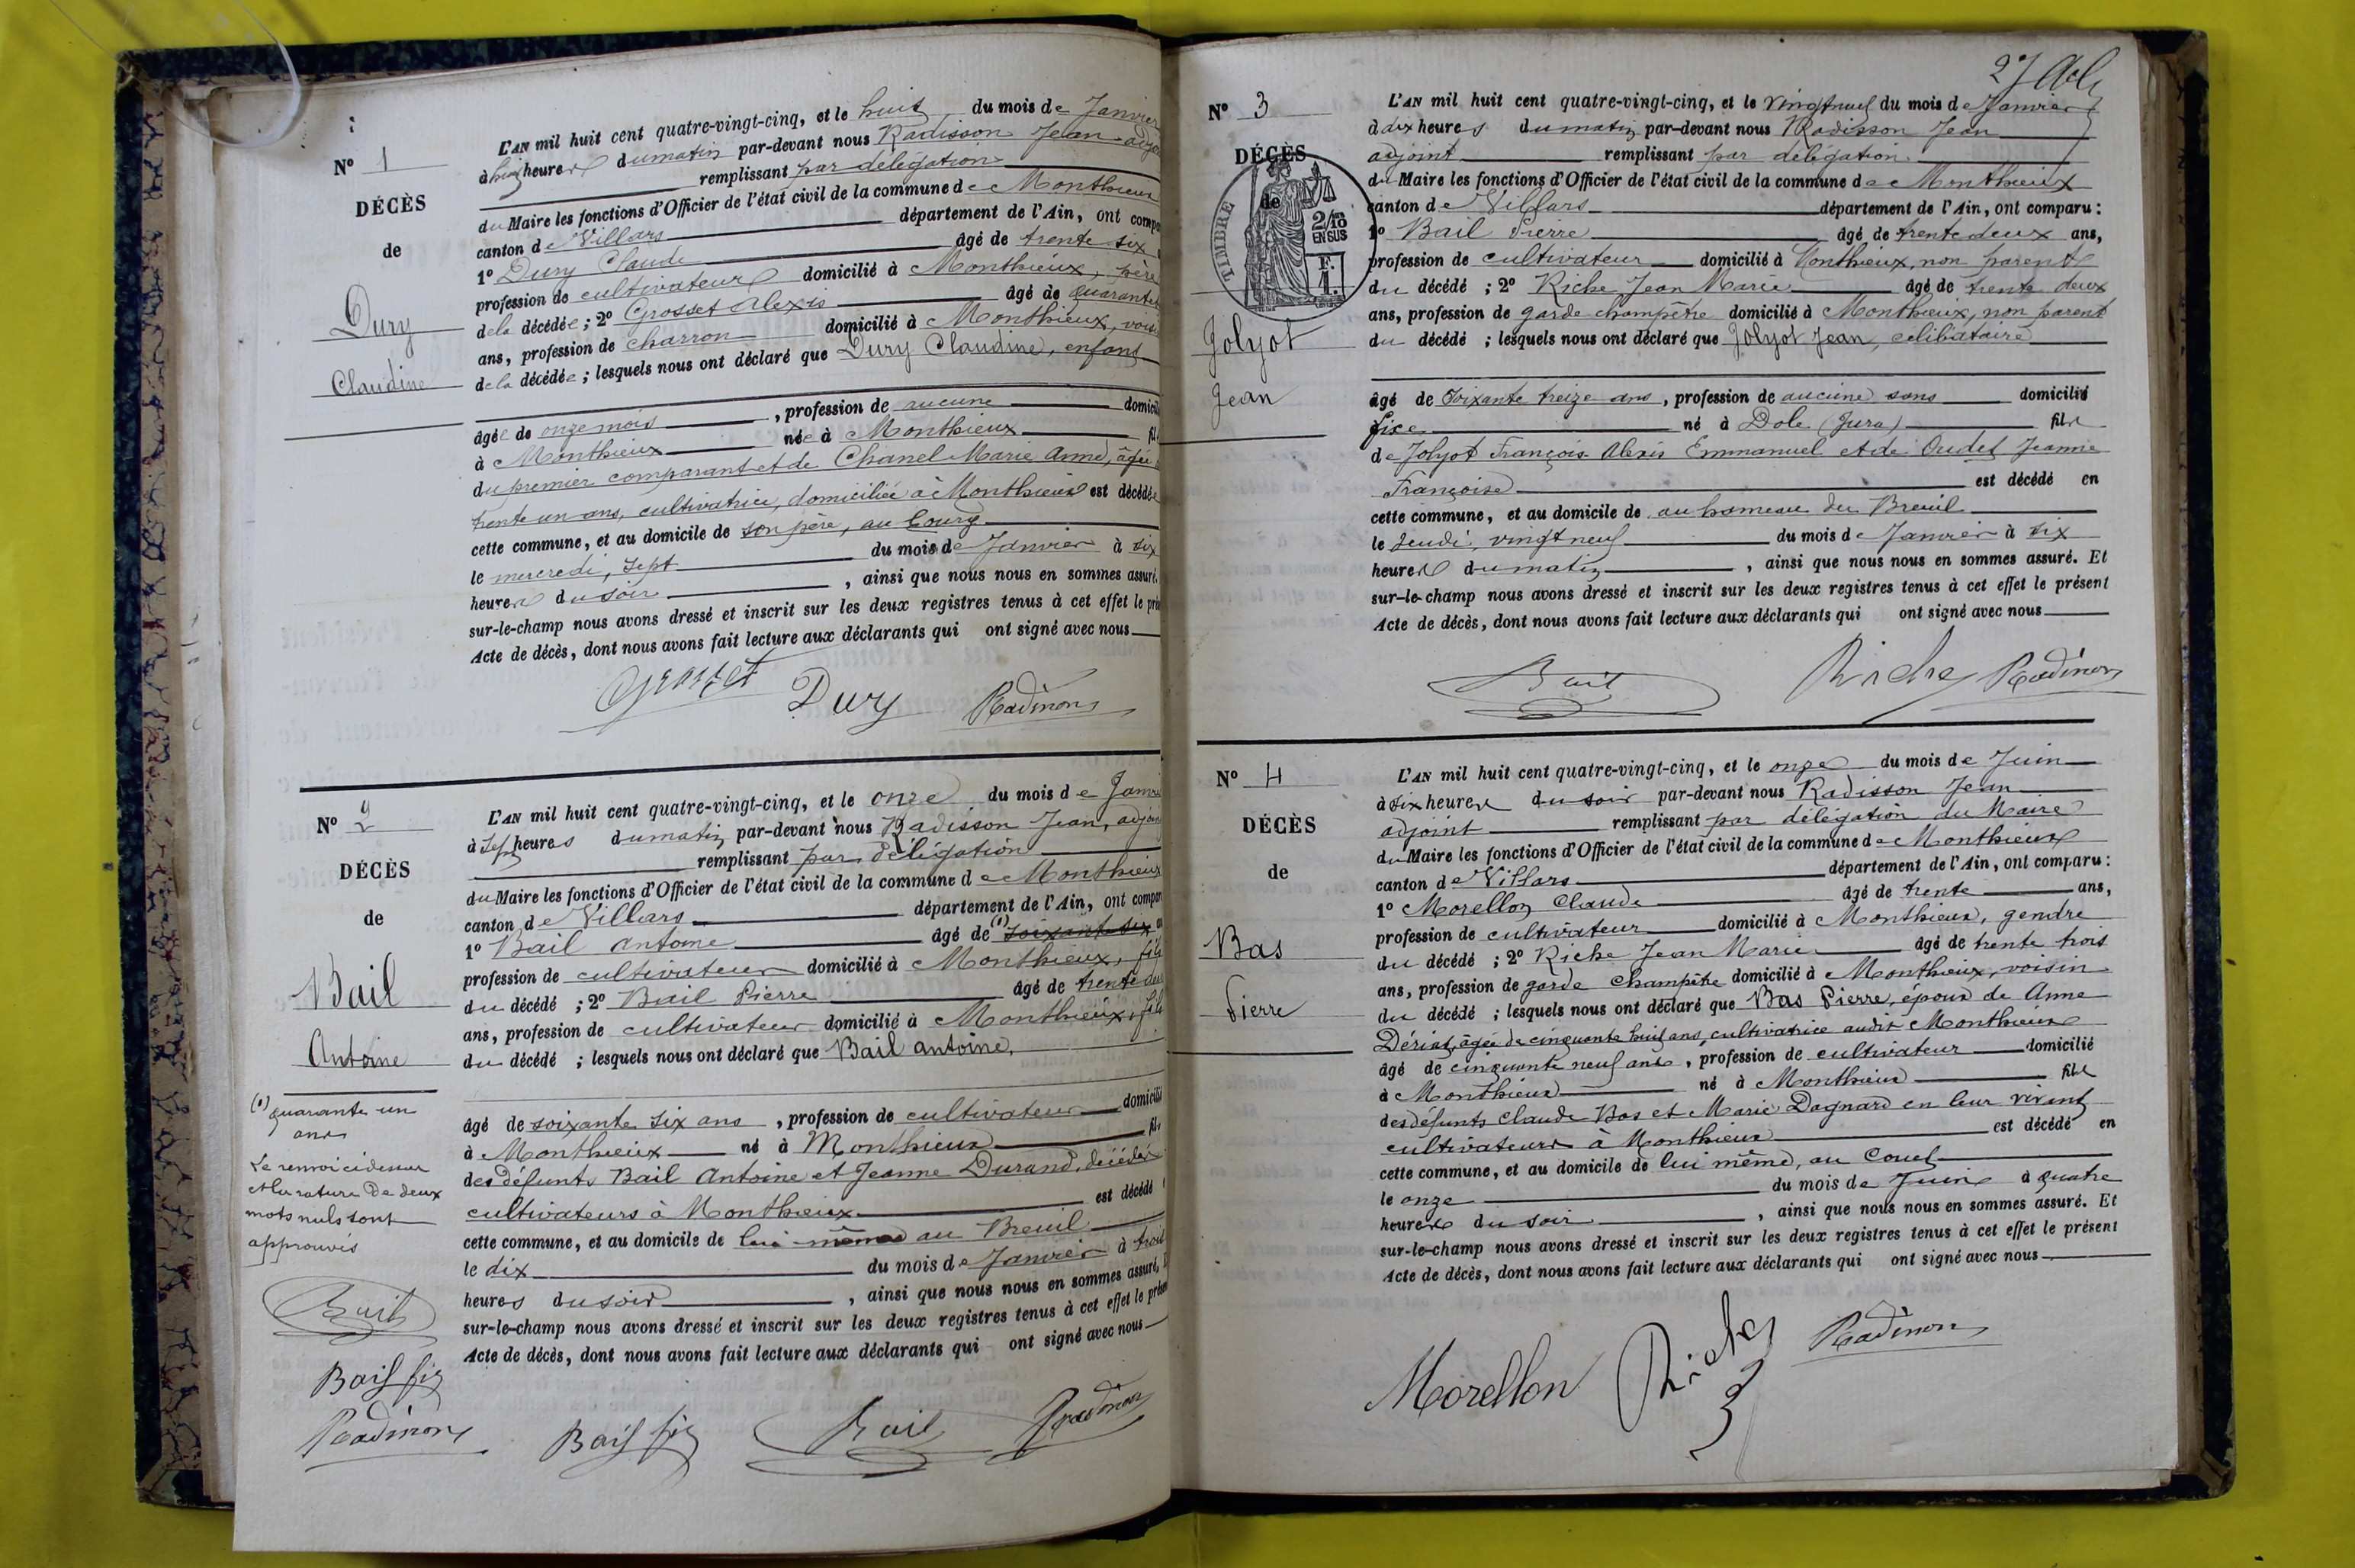 N° 1
DÉCÈS
de
Dury
Claudine
L'AN mil huit cent quatre-vingt-cinq, et le huit du mois de Janvier
à huit heures du matin par-devant nous Radisson Jean adjoint
remplissant par délégation
du Maire les fonctions d'Officier de l'état civil de la commune de Monthieux
canton de Villars département de l'Ain, ont compa
1° Dury Claude âgé de trente six
profession de cultivateur domicilié à Monthieux, père
de la décédée ; 2° Grosset Alexis âgé de quarante
ans, profession de charron domicilié à Monthieux, voisi
de la décédée ; lesquels nous ont déclaré que Dury Claudine, enfant
âgée de onze mois , profession de aucune domicili
à Monthieux née à Monthieux fil
du premier comparant et de Chanel Marie Anne, âgée
trente un ans, cultivatrice, domiciliée à Monthieux est décédée
cette commune, et au domicile de son père, au bourg
le mercredi, sept du mois de Janvier à six
heures du soir , ainsi que nous nous en sommes assuré.
sur-le-champ nous avons dressé et inscrit sur les deux registres tenus à cet effet le pré
Acte de décès, dont nous avons fait lecture aux déclarants qui ont signé avec nous
Grosset Dury Radisson
N° 2
DÉCÈS
de
Bail
Antoine
(1) quarante un
ans
Le renvoi ci dessus
et la rature de deux
mots nuls sont
approuvés
Bail
Bail fix
Radisson
L'AN mil huit cent quatre-vingt-cinq, et le onze du mois de Janvi
à sept heures du matin par-devant nous Radisson Jean, adjoin
remplissant par délégation
du Maire les fonctions d'Officier de l'état civil de la commune de Monthieux
canton de Villars département de l'Ain, ont compar
1° Bail Antoine âgé de (1) soixante six an
profession de cultivateur domicilié à Monthieux, fils
du décédé ; 2° Bail Pierre âgé de trente deux
ans, profession de cultivateur domicilié à Monthieux, fils
du décédé ; lesquels nous ont déclaré que Bail antoine,
âgé de soixante six ans , profession de cultivateur domicilié
à Monthieux né à Monthieux fils
des défunts Bail Antoine et Jeanne Durand, décédés
cultivateurs à Monthieux est décédé
cette commune, et au domicile de lui même au Breuil
le dix du mois de Janvier à trois
heures du soir , ainsi que nous nous en sommes assuré,
sur-le-champ nous avons dressé et inscrit sur les deux registres tenus à cet effet le prése
Acte de décès, dont nous avons fait lecture aux déclarants qui ont signé avec nous
Bail fix Bail Radisson
27
N° 3
DÉCÈS
de
TIMBRE
2/10
EN SUS
F.
1.
Jolyot
Jean
L'AN mil huit cent quatre-vingt-cinq, et le vingt neuf du mois de Janvier
à dix heures du matin par-devant nous Radisson Jean
adjoint remplissant par délégation
du Maire les fonctions d'Officier de l'état civil de la commune de Monthieux
canton de Villars département de l'Ain, ont comparu :
1° Bail Pierre âgé de trente deux ans,
profession de cultivateur domicilié à Monthieux, non parent
du décédé ; 2° Riche Jean Marie âgé de trente deux
ans, profession de garde champêtre domicilié à Monthieux, non parent
du décédé ; lesquels nous ont déclaré que Jolyot Jean, célibataire
âgé de soixante treize ans , profession de aucune sans domicilié
fixe né à Dole (Jura) fils
de Jolyot François Alexis Emmanuel et de Oudet Jeanne
Françoise est décédé en
cette commune, et au domicile de au hameau du Breuil
le Jeudi, vingt neuf du mois de Janvier à six
heures du matin , ainsi que nous nous en sommes assuré. Et
sur-le-champ nous avons dressé et inscrit sur les deux registres tenus à cet effet le présent
Acte de décès, dont nous avons fait lecture aux déclarants qui ont signé avec nous
Bail Riche Radisson
N° 4
DÉCÈS
de
Bas
Pierre
L'AN mil huit cent quatre-vingt-cinq, et le onze du mois de Juin
à six heures du soir par-devant nous Radisson Jean
adjoint remplissant par délégation du Maire
du Maire les fonctions d'Officier de l'état civil de la commune de Monthieux
canton de Villars département de l'Ain, ont comparu :
1° Morellon Claude âgé de trente ans,
profession de cultivateur domicilié à Monthieux, gendre
du décédé ; 2° Riche Jean Marie âgé de trente trois
ans, profession de garde champêtre domicilié à Monthieux, voisin
du décédé ; lesquels nous ont déclaré que Bas Pierre, époux de Anne
Dériat, âgée de cinquante huit ans, cultivatrice audit Monthieux
âgé de cinquante neuf ans , profession de cultivateur domicilié
à Monthieux né à Monthieux fils
des défunts Claude Bas et Marie Dagnard en leur vivant
cultivateurs à Monthieux est décédé en
cette commune, et au domicile de lui même, au
le onze du mois de Juin à quatre
heures du soir , ainsi que nous nous en sommes assuré. Et
sur-le-champ nous avons dressé et inscrit sur les deux registres tenus à cet effet le présent
Acte de décès, dont nous avons fait lecture aux déclarants qui ont signé avec nous
Morellon Riche Radisson